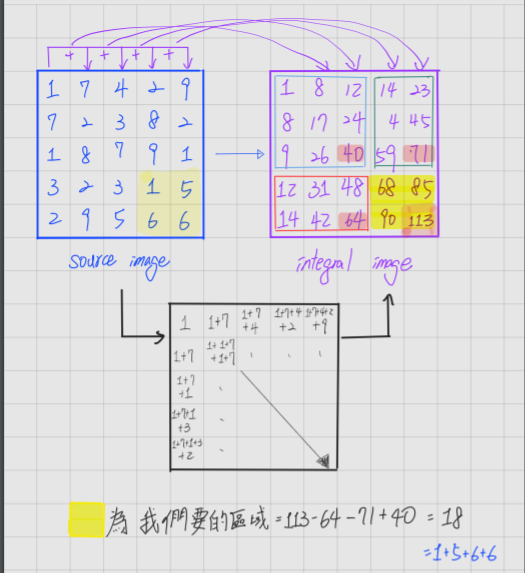 + + + +
1 7 4 2 9
7 2 3 8 2
1 8 7 9 1
3 2 3 1 5
2 9 5 6 6
source image
1 8 12 14 23
8 17 24 4 45
9 26 40 59 71
12 31 48 68 85
14 42 64 90 113
integral image
1 1+7 1+7+4 1+7+4+2 1+7+4+2+9
1+7 1+1+7+1+7 . . .
1+7+1 .
1+7+1+3 .
1+7+1+3+2 .
為我們要的區域=113-64-71+40=18
=1+5+6+6